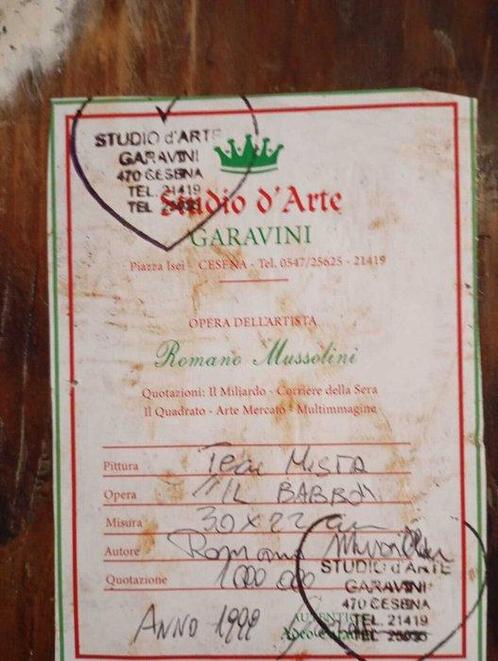 STUDIO d'ARTE
GARAVINI
470 CESENA
TEL. 21419
TEL
Studio d'Arte
GARAVINI
Piazza Isei - CESENA - Tel. 0547/25625 - 21419
OPERA DELL'ARTISTA
Romano Mussolini
Quotazioni: Il Miliardo - Corriere della Sera
Il Quadrato - Arte Mercato - Multimmagine
Pittura MISTA
Opera "IL
Misura 30 x 22 cm
Autore Romano Mussolini
Quotazione 1000 000
STUDIO d'ARTE
GARAVINI
470 CESENA
TEL. 21419
TEL 25625
ANNO